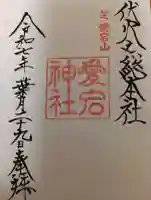 伏火之総本社
芝 愛宕山
愛宕
神社
令和七年 葉月二十九日奉拝